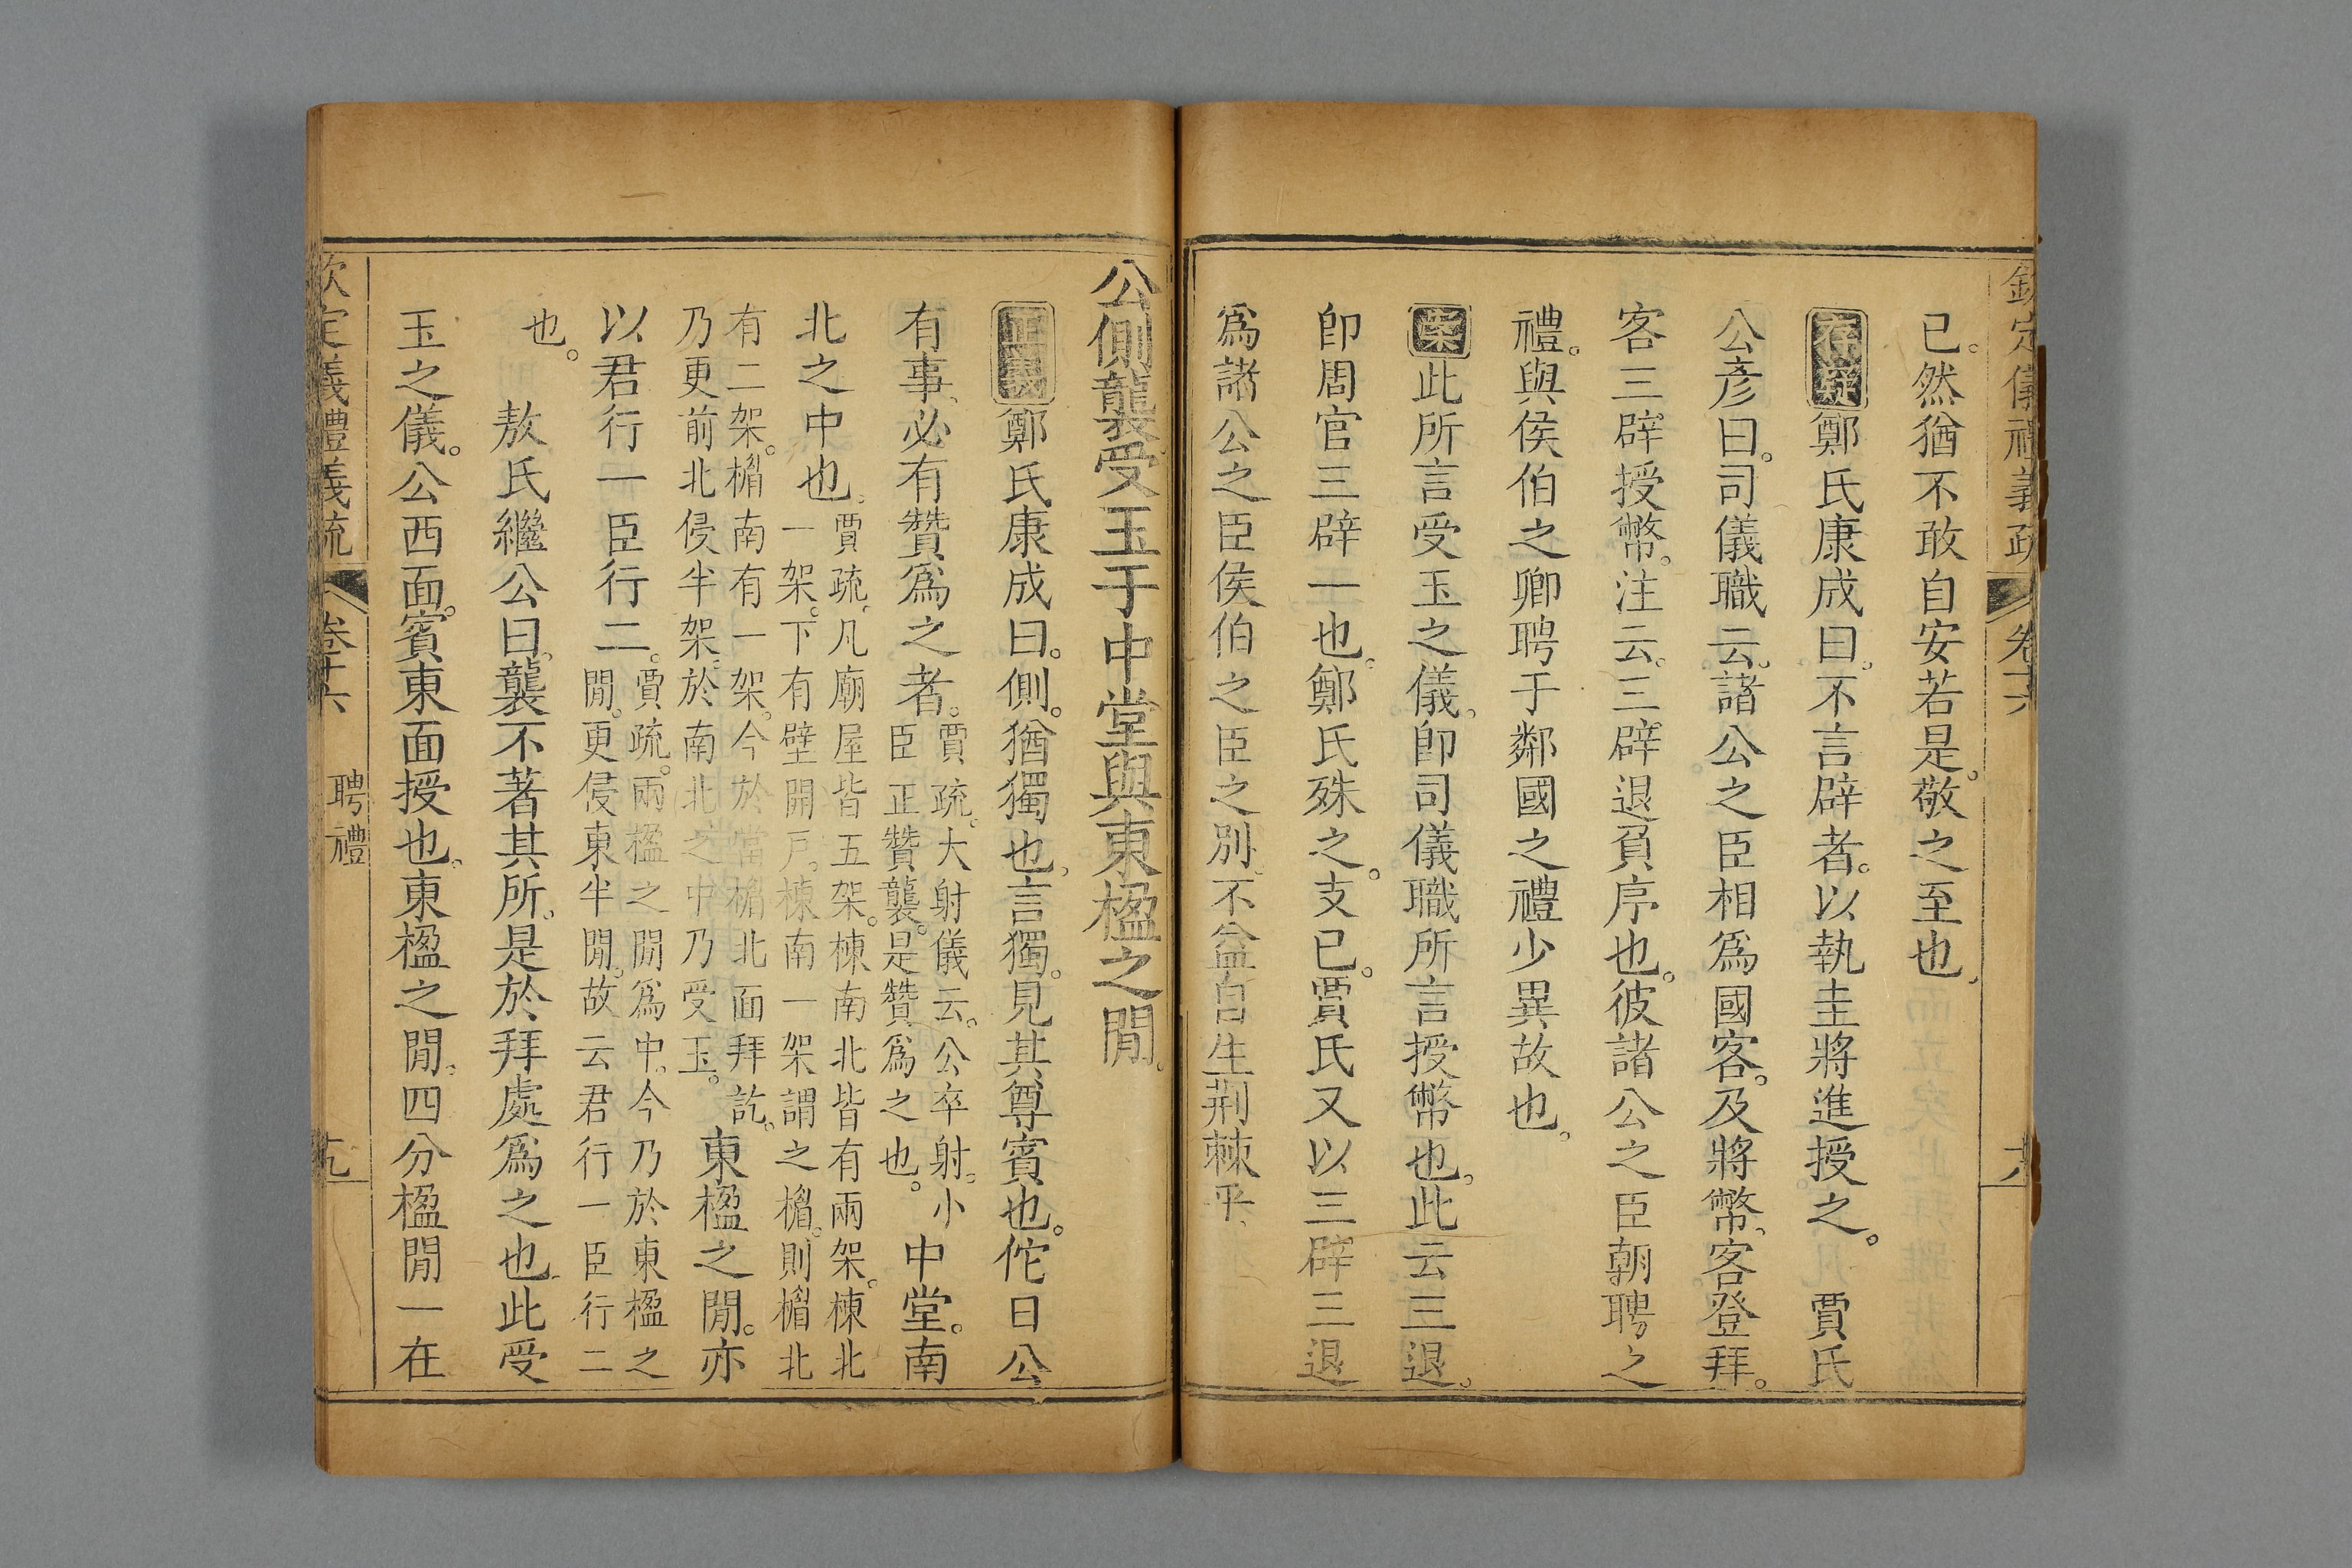 欽定儀禮義疏 卷十六 六
已。然猶不敢自安若是。敬之至也。
存疑鄭氏康成曰。不言辟者。以執圭將進授之。 賈氏
公彥曰。司儀職云。諸公之臣相爲國客。及將幣。客登拜。
客三辟授幣。注云。三辟退負序也。彼諸公之臣朝聘之
禮。與侯伯之卿聘于鄰國之禮少異故也。
案此所言受玉之儀。卽司儀職所言授幣也。此云三退。
卽周官三辟一也。鄭氏殊之。支已。賈氏又以三辟三退
爲諸公之臣侯伯之臣之別。不益自生荆棘乎。
公側襲受玉于中堂與東楹之閒。
正義鄭氏康成曰。側。猶獨也。言獨。見其尊賓也。佗日公
有事。必有贊爲之者。
賈疏。大射儀云。公卒射。小
臣正贊襲。是贊爲之也。
中堂。南
北之中也。
賈疏。凡廟屋皆五架。棟南北皆有兩架。棟北
一架。下有壁開戶。棟南一架謂之楣。則楣北
有二架。楣南有一架。今於當楣北面拜訖。
乃更前北侵半架。於南北之中乃受玉。
東楹之閒。亦
以君行一臣行二。
賈疏。兩楹之閒爲中。今乃於東楹之
閒。更侵東半閒。故云君行一臣行二
也。 敖氏繼公曰。襲不著其所。是於拜處爲之也。此受
玉之儀。公西面。賓東面授也。東楹之閒。四分楹閒一在
欽定儀禮義疏 卷十六 聘禮 九